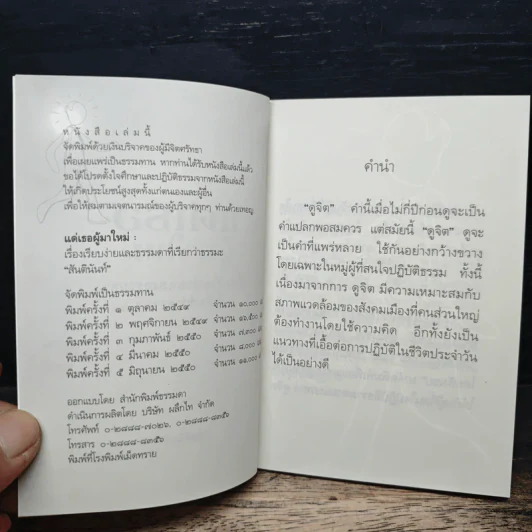 หนังสือเล่มนี้
จัดพิมพ์ด้วยเงินบริจาคของผู้มีจิตศรัทธา
เพื่อเผยแพร่เป็นธรรมทาน หากท่านได้รับหนังสือเล่มนี้แล้ว
ขอได้โปรดตั้งใจศึกษาและปฏิบัติธรรมจากหนังสือเล่มนี้
ให้เกิดประโยชน์สูงสุดทั้งแก่ตนเองและผู้อื่น
เพื่อให้สมตามเจตนารมณ์ของผู้บริจาคทุกๆ ท่านด้วยเทอญ
แด่เธอผู้มาใหม่ :
เรื่องเรียบง่ายและธรรมดาที่เรียกว่าธรรมะ
“สันตินันท์”
จัดพิมพ์เป็นธรรมทาน
พิมพ์ครั้งที่ ๑ ตุลาคม ๒๕๔๙ จำนวน ๑๐,๐๐๐
พิมพ์ครั้งที่ ๒ พฤศจิกายน ๒๕๔๙ จำนวน ๑๖,๕๐๐
พิมพ์ครั้งที่ ๓ กุมภาพันธ์ ๒๕๕๐ จำนวน ๗,๓๐๐
พิมพ์ครั้งที่ ๔ มีนาคม ๒๕๕๐ จำนวน ๘,๐๐๐
พิมพ์ครั้งที่ ๕ มิถุนายน ๒๕๕๐ จำนวน
ออกแบบโดย สำนักพิมพ์ธรรมดา
ดำเนินการผลิตโดย บริษัท ผลึกไท จำกัด
โทรศัพท์ ๐-๒๘๘๘-๗๐๒๖, ๐-๒๘๘๘-๘๓๕๖
โทรสาร ๐-๒๘๘๘-๘๓๕๖
พิมพ์ที่โรงพิมพ์เม็ดทราย
คำนำ
“ดูจิต” คำนี้เมื่อไม่กี่ปีก่อนดูจะเป็น
คำแปลกพอสมควร แต่สมัยนี้ “ดูจิต” ดูจะ
เป็นคำที่แพร่หลาย ใช้กันอย่างกว้างขวาง
โดยเฉพาะในหมู่ผู้ที่สนใจปฏิบัติธรรม ทั้งนี้
เนื่องมาจากการ ดูจิต มีความเหมาะสมกับ
สภาพแวดล้อมของสังคมเมืองที่คนส่วนใหญ่
ต้องทำงานโดยใช้ความคิด อีกทั้งยังเป็น
แนวทางที่เอื้อต่อการปฏิบัติในชีวิตประจำวัน
ได้เป็นอย่างดี